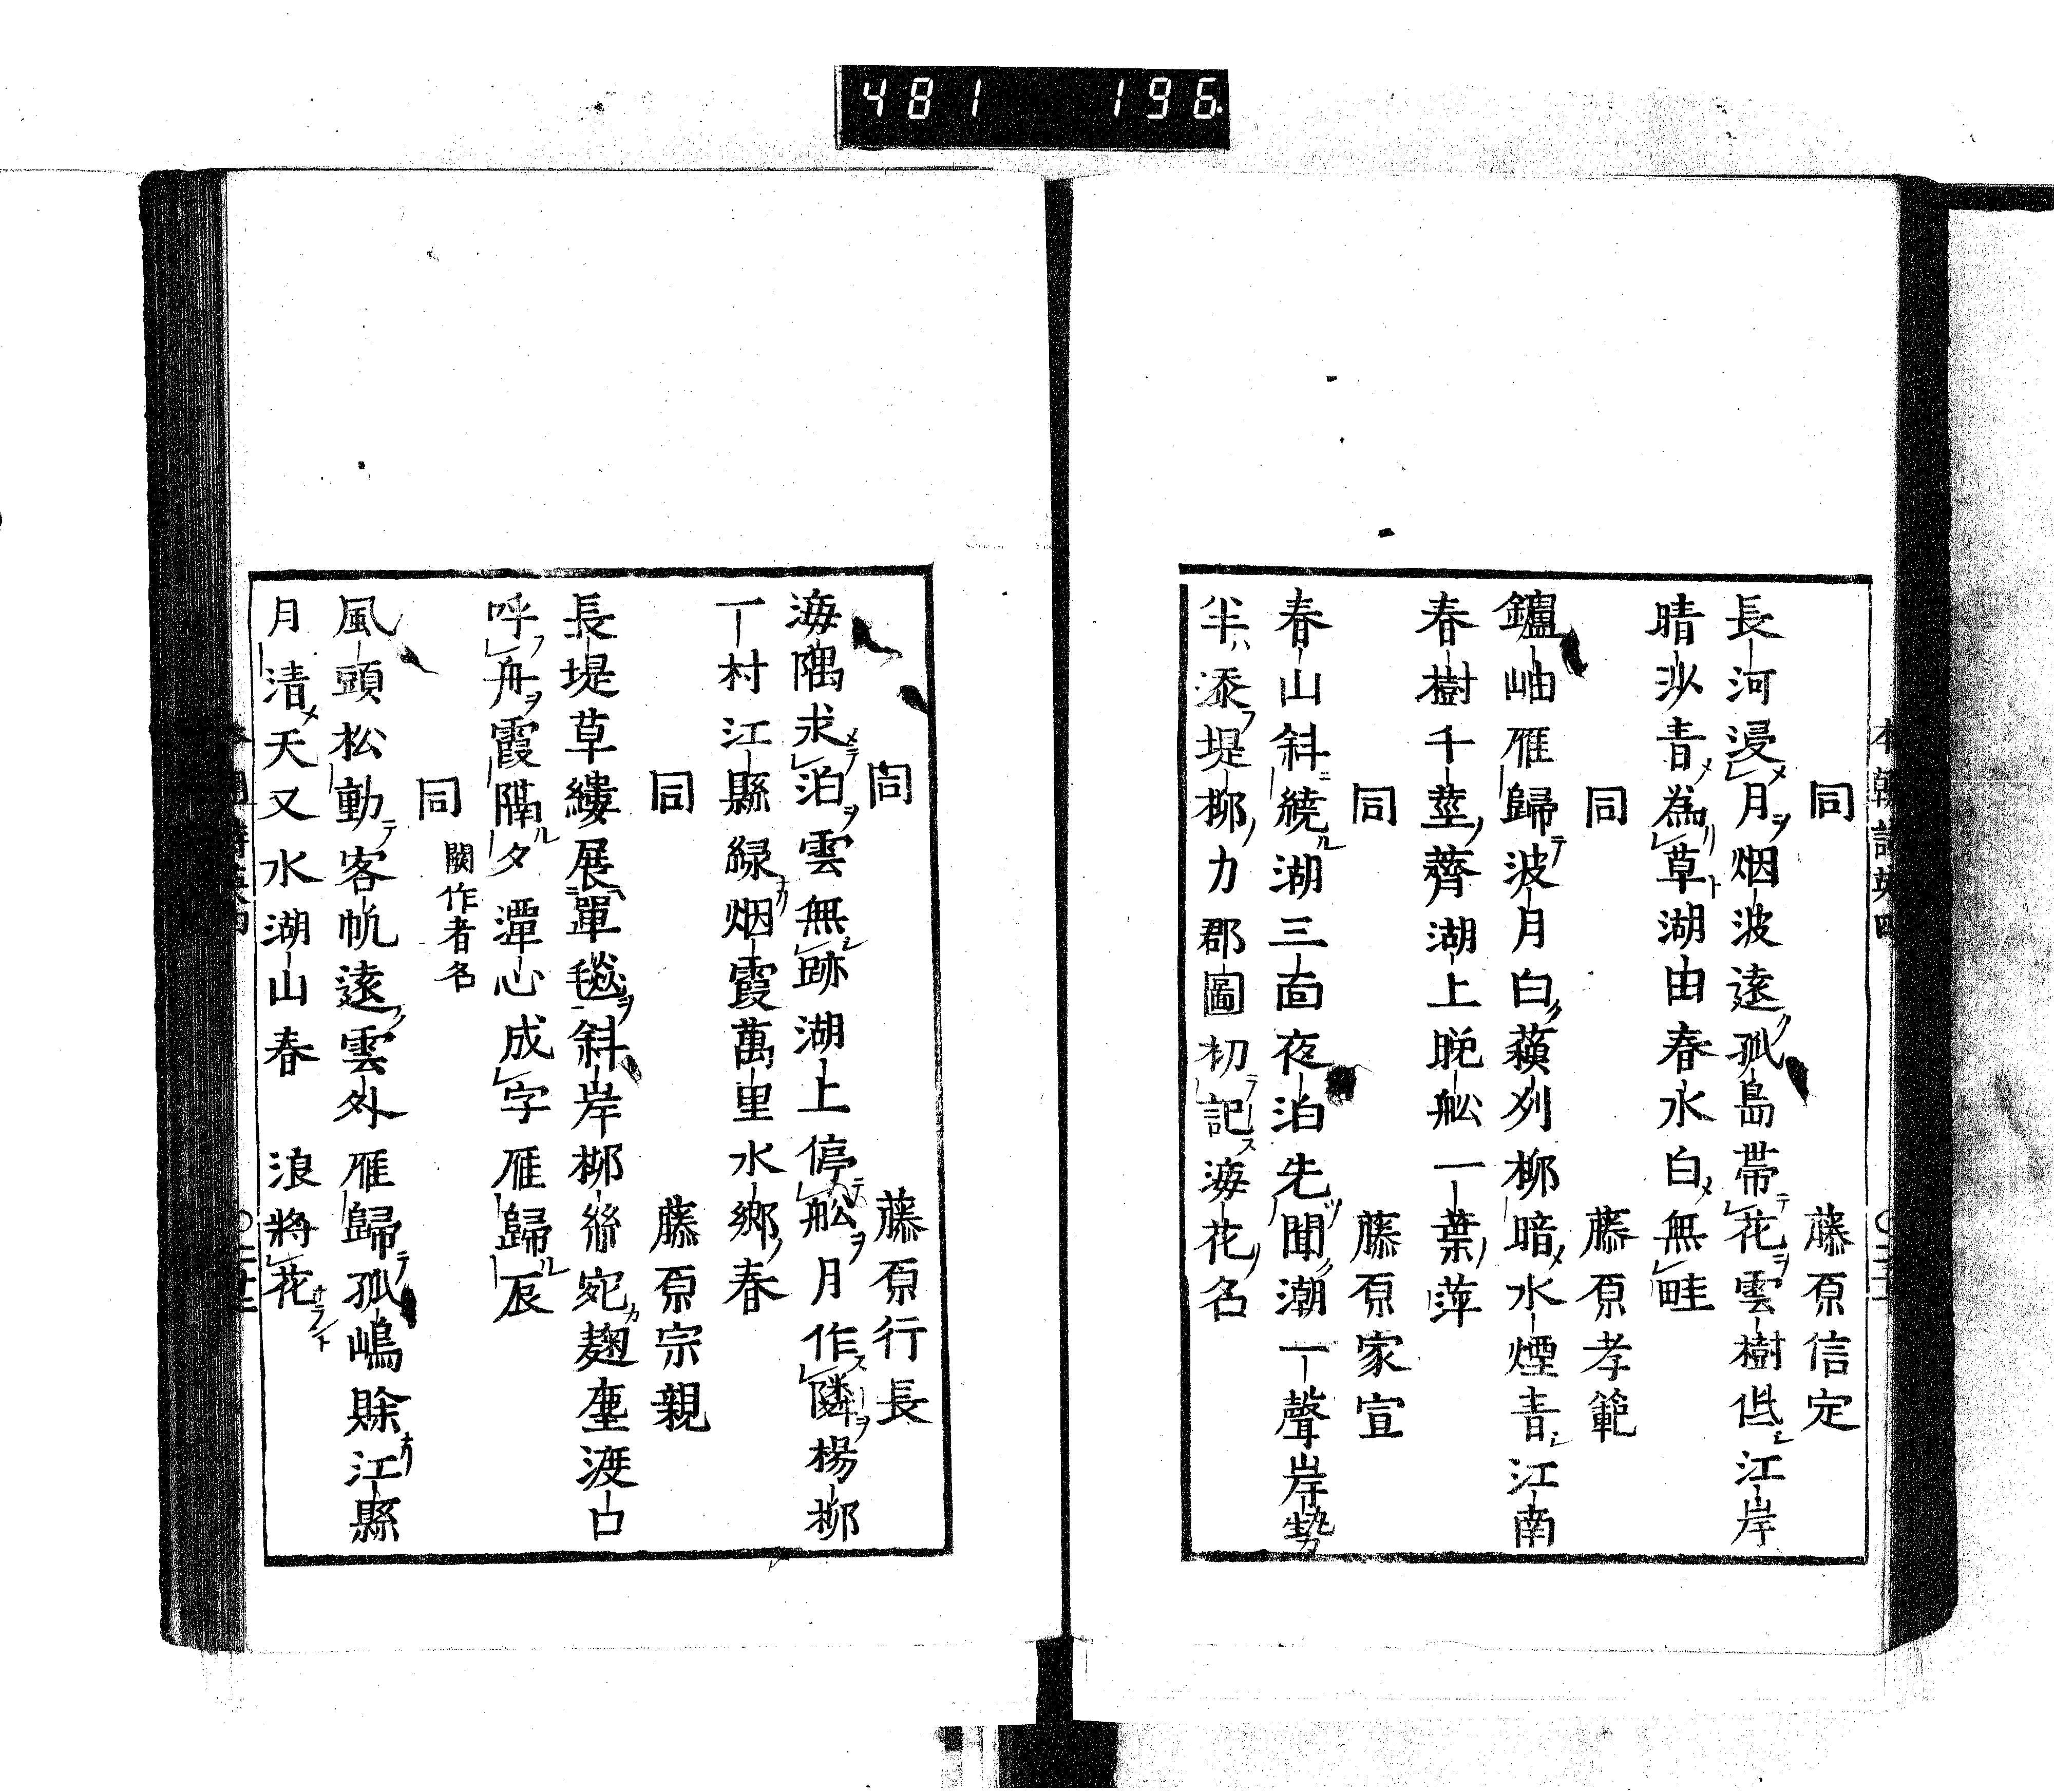 481 196
同 藤原信定
長河浸月烟波遠孤島帶花雲樹低江岸
晴沙青為草湖由春水白無畦
同 藤原孝範
鑪岫雁歸波月白蘋列柳暗水煙青江南
春樹千莖薺湖上晚舩一葉萍
同 藤原家宣
春山斜繞湖三面夜泊先聞潮一聲岸勢
半添堤柳力郡圖初記海花名
同 藤原行長
海隅求泊雲無跡湖上停舩月作隣楊柳
一村江縣綠烟霞萬里水鄉春
同 藤原宗親
長堤草縷展單毯斜岸柳絲宛麹塵渡口
呼舟霞隔夕潭心成字雁歸辰
同 闕作者名
風頭松動客帆遠雲外雁歸孤嶋賖江縣
月清天又水湖山春浪將花